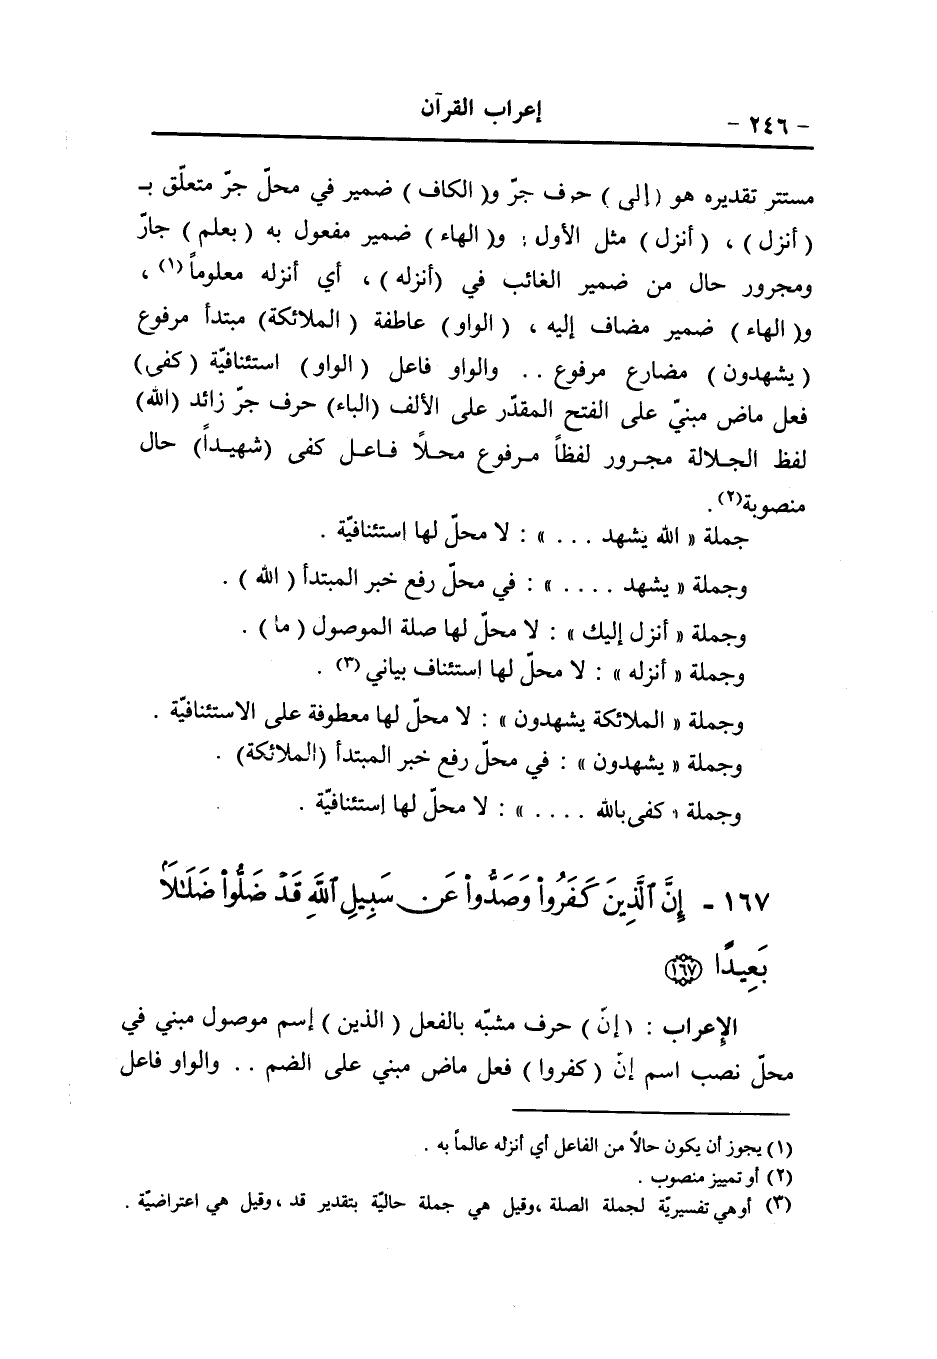 إعراب القرآن
- ٢٤٦ -
مستتر تقديره هو (إلى) حرف جرّ و( الكاف) ضمير في محلّ جرّ متعلّق بـ
(أنزل) ، (أنزل) مثل الأول ؛ و( الهاء) ضمير مفعول به (بعلم) جارّ
ومجرور حال من ضمير الغائب في (أنزله) ، أي أنزله معلوماً(١) ،
و( الهاء) ضمير مضاف إليه ، (الواو) عاطفة (الملائكة) مبتدأ مرفوع
(يشهدون) مضارع مرفوع .. والواو فاعل (الواو) استئنافيّة (كفى)
فعل ماض مبنيّ على الفتح المقدّر على الألف (الباء) حرف جرّ زائد (الله)
لفظ الجلالة مجرور لفظاً مرفوع محلاً فاعل كفى (شهيداً) حال
منصوبة(٢).
جملة « الله يشهد ... » : لا محلّ لها إستئنافيّة .
وجملة « يشهد .... » : في محلّ رفع خبر المبتدأ (الله) .
وجملة « أنزل إليك » : لا محلّ لها صلة الموصول (ما) .
وجملة « أنزله » : لا محلّ لها استئناف بياني(٣) .
وجملة « الملائكة يشهدون » : لا محلّ لها معطوفة على الاستئنافيّة .
وجملة « يشهدون » : في محلّ رفع خبر المبتدأ (الملائكة) .
وجملة « كفى بالله .... » : لا محلّ لها إستئنافيّة .
١٦٧ - إِنَّ ٱلَّذِينَ كَفَرُواْ وَصَدُّواْ عَن سَبِيلِ ٱللَّهِ قَدْ ضَلُّواْ ضَلَـٰلَاۢ
بَعِيدًا ﴿١٦٧﴾
الإعراب : (إنّ) حرف مشبّه بالفعل (الذين) إسم موصول مبني في
محلّ نصب اسم إنّ (كفروا) فعل ماض مبني على الضم .. والواو فاعل
(١) يجوز أن يكون حالاً من الفاعل أي أنزله عالماً به .
(٢) أو تمييز منصوب .
(٣) أو هي تفسيريّة لجملة الصلة ،وقيل هي جملة حاليّة بتقدير قد ، وقيل هي اعتراضيّة .